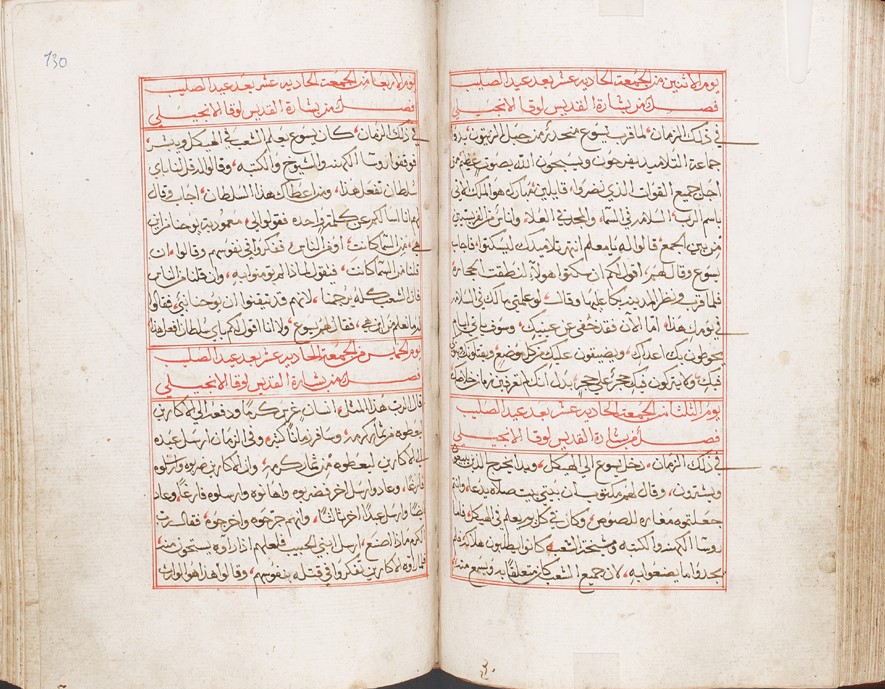 يوم الاثنين من الجمعة الحاديه عشر بعد عيد الصليب
فصل من بشارة القديس لوقا الانجيلي
في ذلك الزمان، لما قرب يسوع منحدر من جبل الزيتون بدوا
جماعة التلاميد يفرحون ويسبحون الله بصوت عظيم من
اجل جميع القوات الذي نضروا، قايلين مبارك هو الملك الاتي
باسم الرب، السلامه في السما، والمجد في العلا، واناس من الفريسيين
من بين الجمع، قالوا له يا معلم انتهر تلاميدك ليسكتوا، فاجاب
يسوع وقال لهم، اقول لكم ان سكتوا هولاء لنطقت الحجاره
فلما قرب ونظر المدينه بكا عليها وقال، لو علمتي مالك في السلامه
في يومك هذا، اما الآن فقد خفى عن عينيك، وسوف ياتي ايام
يحوطون بك اعداك، ويضيقون عليك من كل موضع، ويقتلونك
فيك، ولا يتركون فيك حجر على حجر، بدل انك لم تعرفين زمان خلاصك
يوم الثلثا من الجمعة الحاديه عشر بعد عيد الصليب
فصل من بشارة القديس لوقا الانجيلي
في ذلك الزمان، دخل يسوع الي الهيكل، وبدا يخرج الذين
ويشترون، وقال لهم مكتوب ان بيتي بيت صلاه يدعا، وانتم
جعلتموه مغاره للصوص، وكان في كل يوم يعلم في الهيكل، فاما
روسا الكهنه والكتبه ومشيخة الشعب، كانوا يطلبون هلاكه، فلم
يجدوا ما يصنعوا به، لان جميع الشعب كان متعلقا به ويسمع منه
130
يوم الاربعا من الجمعة الحاديه عشر بعد عيد الصليب
فصل من بشارة القديس لوقا الانجيلي
في ذلك الزمان، كان يسوع يعلم الشعب في الهيكل ويبشر
فوقفوا روسا الكهنه والشيوخ والكتبه، وقالوا له قل لنا باي
سلطان تفعل هذا، ومن اعطاك هذا السلطان، اجاب وقال
لهم انا اسالكم عن كلمة واحده، فقولوا لي، معمودية يوحنا من اين
هي، من السما كانت، أو من الناس، ففكروا في نفوسهم وقالوا، ان
قلنا من السما كانت، فيقول لماذا لم تومنوا به، وان قلنا من الناس
فان الشعب كله يرجمنا، لانهم قد تيقنوا ان يوحنا نبي، فقالوا
له ما نعلم من اين هي، فقال لهم يسوع، ولا انا اقول لكم باي سلطان افعل هذا
يوم الخميس من الجمعة الحاديه عشر بعد عيد الصليب
فصل من بشارة القديس لوقا الانجيلي
قال الرب هذا المثل، انسان غرس كرما ودفعه الي الاكارين
وسافر زمانا كثيره، وفي الزمان ارسل عبده
الي الاكارين ليعطوه من ثمار كرمه، وان الاكارين ضربوه وارسلوه
فارغا، وعاد وارسل اخر فضربوه واهانوه وارسلوه فارغا، وعاد
ايضا وارسل عبدا اخر ثالثا، وانهم جرحوه واخرجوه، فقال رب
الكرم ماذا اصنع، ارسل ابني الحبيب فلعلهم اذا راوه يستحون منه
فلما راوه الاكارين تفكروا في قتله بنفوسهم، وقالوا هذا هو الوارث